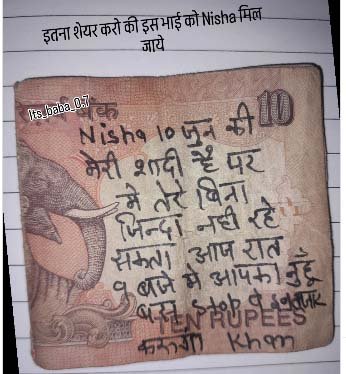 इतना शेयर करो की इस भाई को Nisha मिल
जाये
Its_baba_0.7
बैंक
10
Nisha 10 जुन की
मेरी शादी है पर
मे तेरे बिना
जिन्दा नही रहे
सकता आज रात
9 बजे मे आपका
बस Stop पे इन्तजार
TEN RUPEES
करूंगा Kham